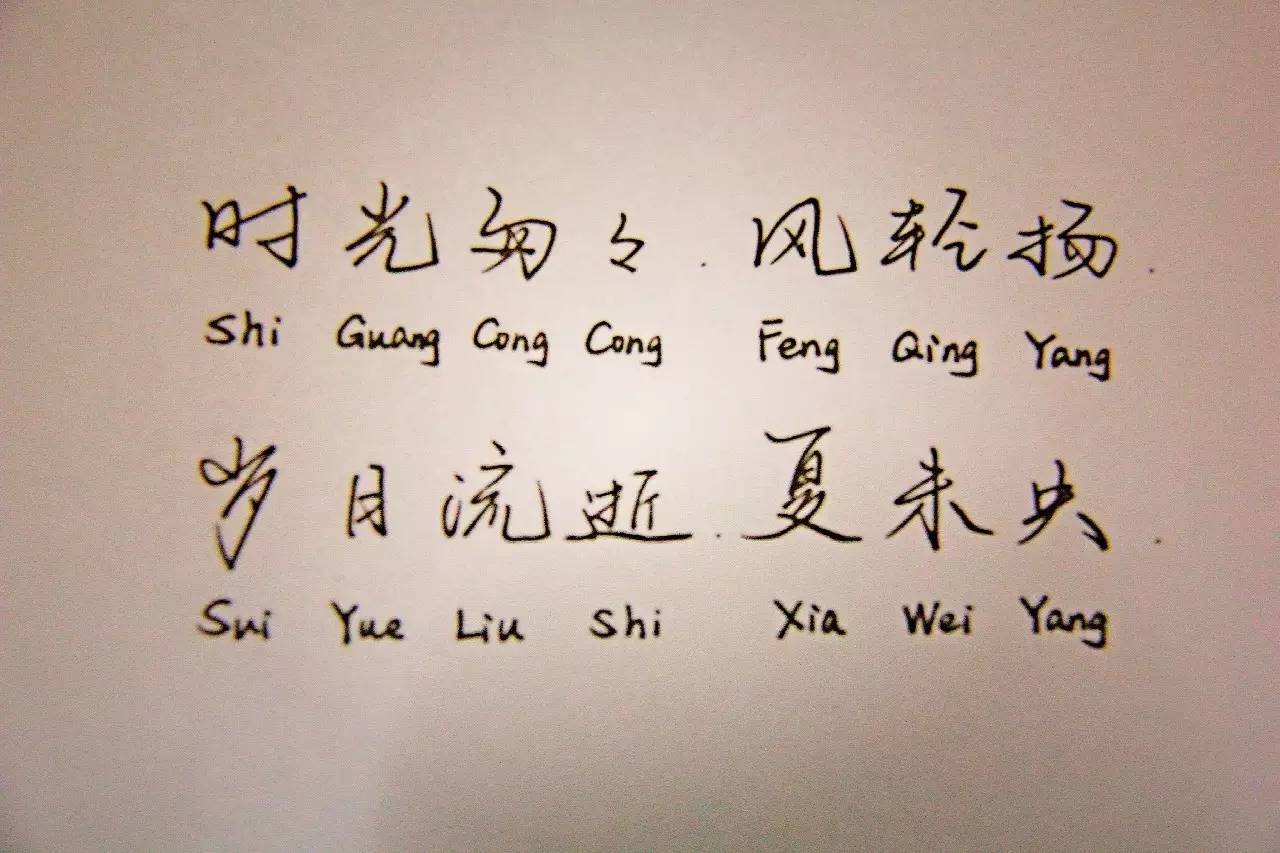 时光匆々.风轻扬.
Shi Guang Cong Cong Feng Qing Yang
岁月流逝.夏未央.
Sui Yue Liu Shi Xia Wei Yang